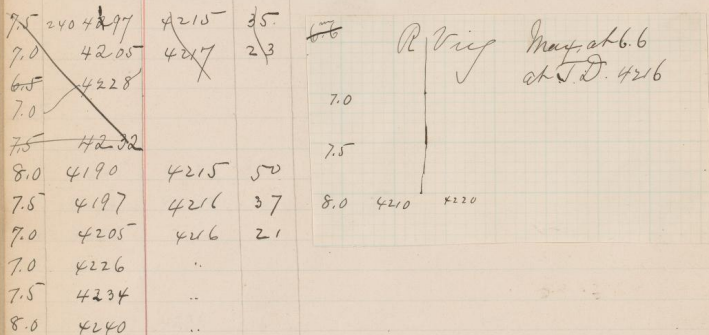 7.5 240 4297 4215 35.
7.0 4205 4217 23
6.5 4228
7.0
7.5 4232
8.0 4190 4215 50
7.5 4197 4216 37
7.0 4205 4216 21
7.0 4226 ..
7.5 4234 ..
8.0 4240 ..
6.6 R Virg Max. at 6.6
at J.D. 4216
7.0
7.5
8.0 4210 4220